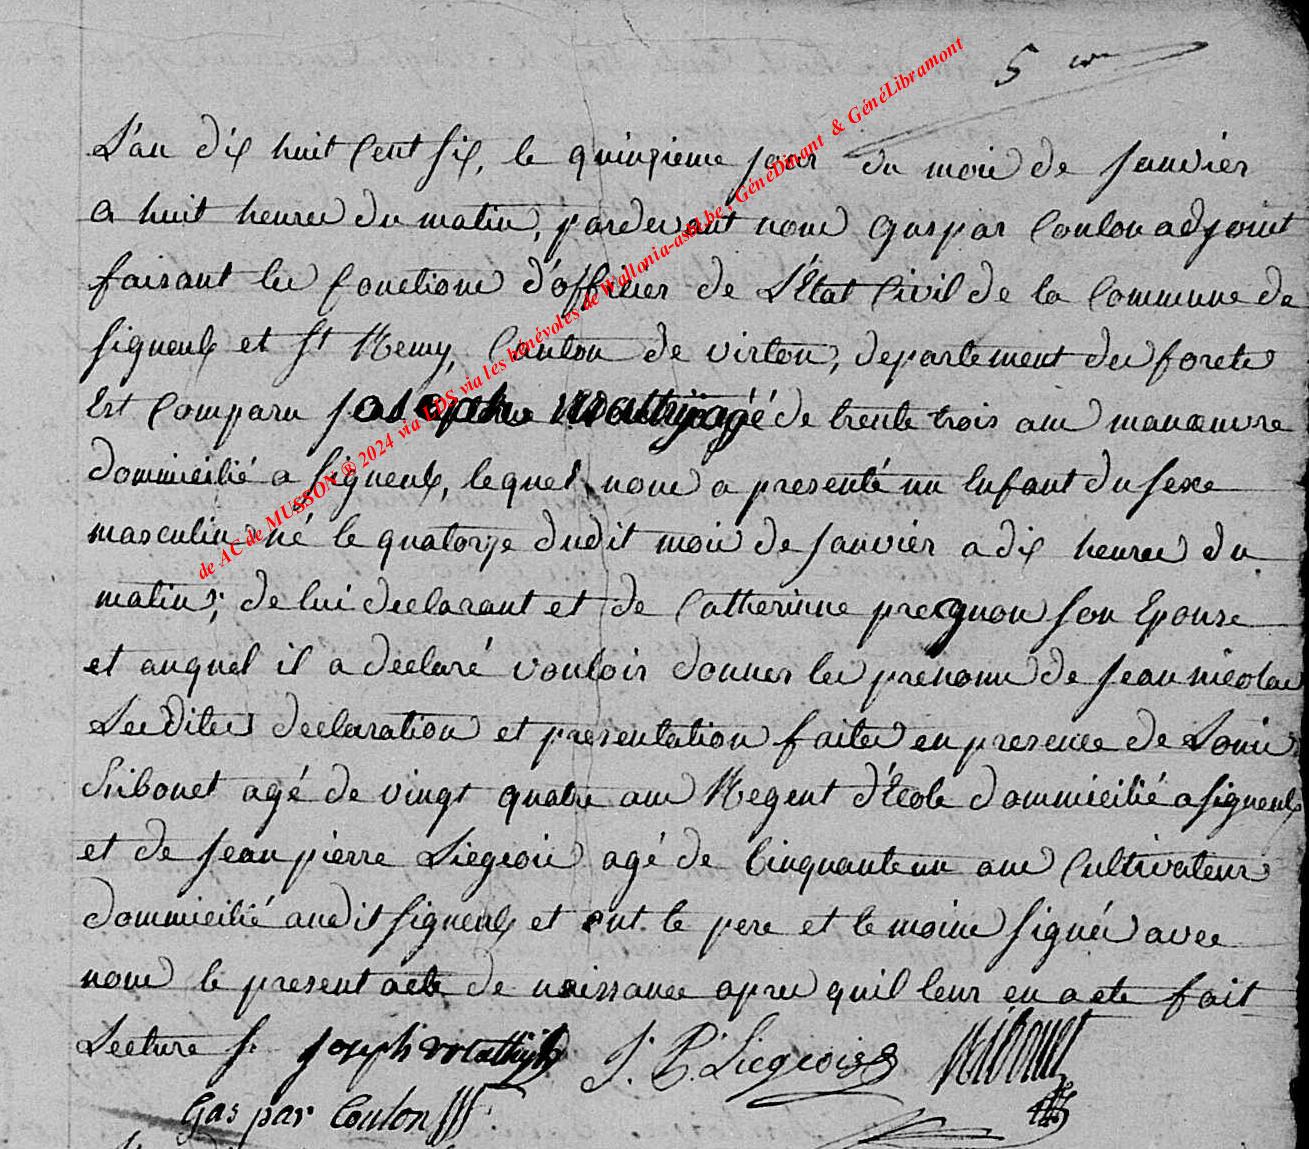 5 em
L'an dix huit Cent six, le quinzieme jour du mois de Janvier
a huit heures du matin, pardevant nous Gaspar Coulon adjoint
faisant les fonctions d'officier de L'État Civil de la Commune de
Signeulx et St Remy, Canton de virton, departement des forets
Est Comparu joseph Mathij agé de trente trois ans manœuvre
dommicilié a Signeulx, lequel nous a presenté un Enfant du sexe
masculin né le quatorze dudit mois de Janvier a dix heures du
matin; de lui declarant et de Catherinne preignon son Epouse
et auquel il a declaré vouloir donner les prenoms de Jean nicolas
Lesdites declaration et presentation faites en presence de Louis
agé de vingt quatre ans Regent d'École dommicilié a Signeulx
et de Jean pierre Liegeois agé de Cinquante un ans Cultivateur
dommicilié audit Signeulx et ont le pere et temoins signés avec
nous le present acte de naissance apres quil leur en a eté fait
Lecture joseph mathij J. P. Liegeois
Gaspar Coulon
de AC de MUSSON® 2024 via LDS via les bénévoles de Wallonia-asbl.be ; GénéDinant & GénéLibramont